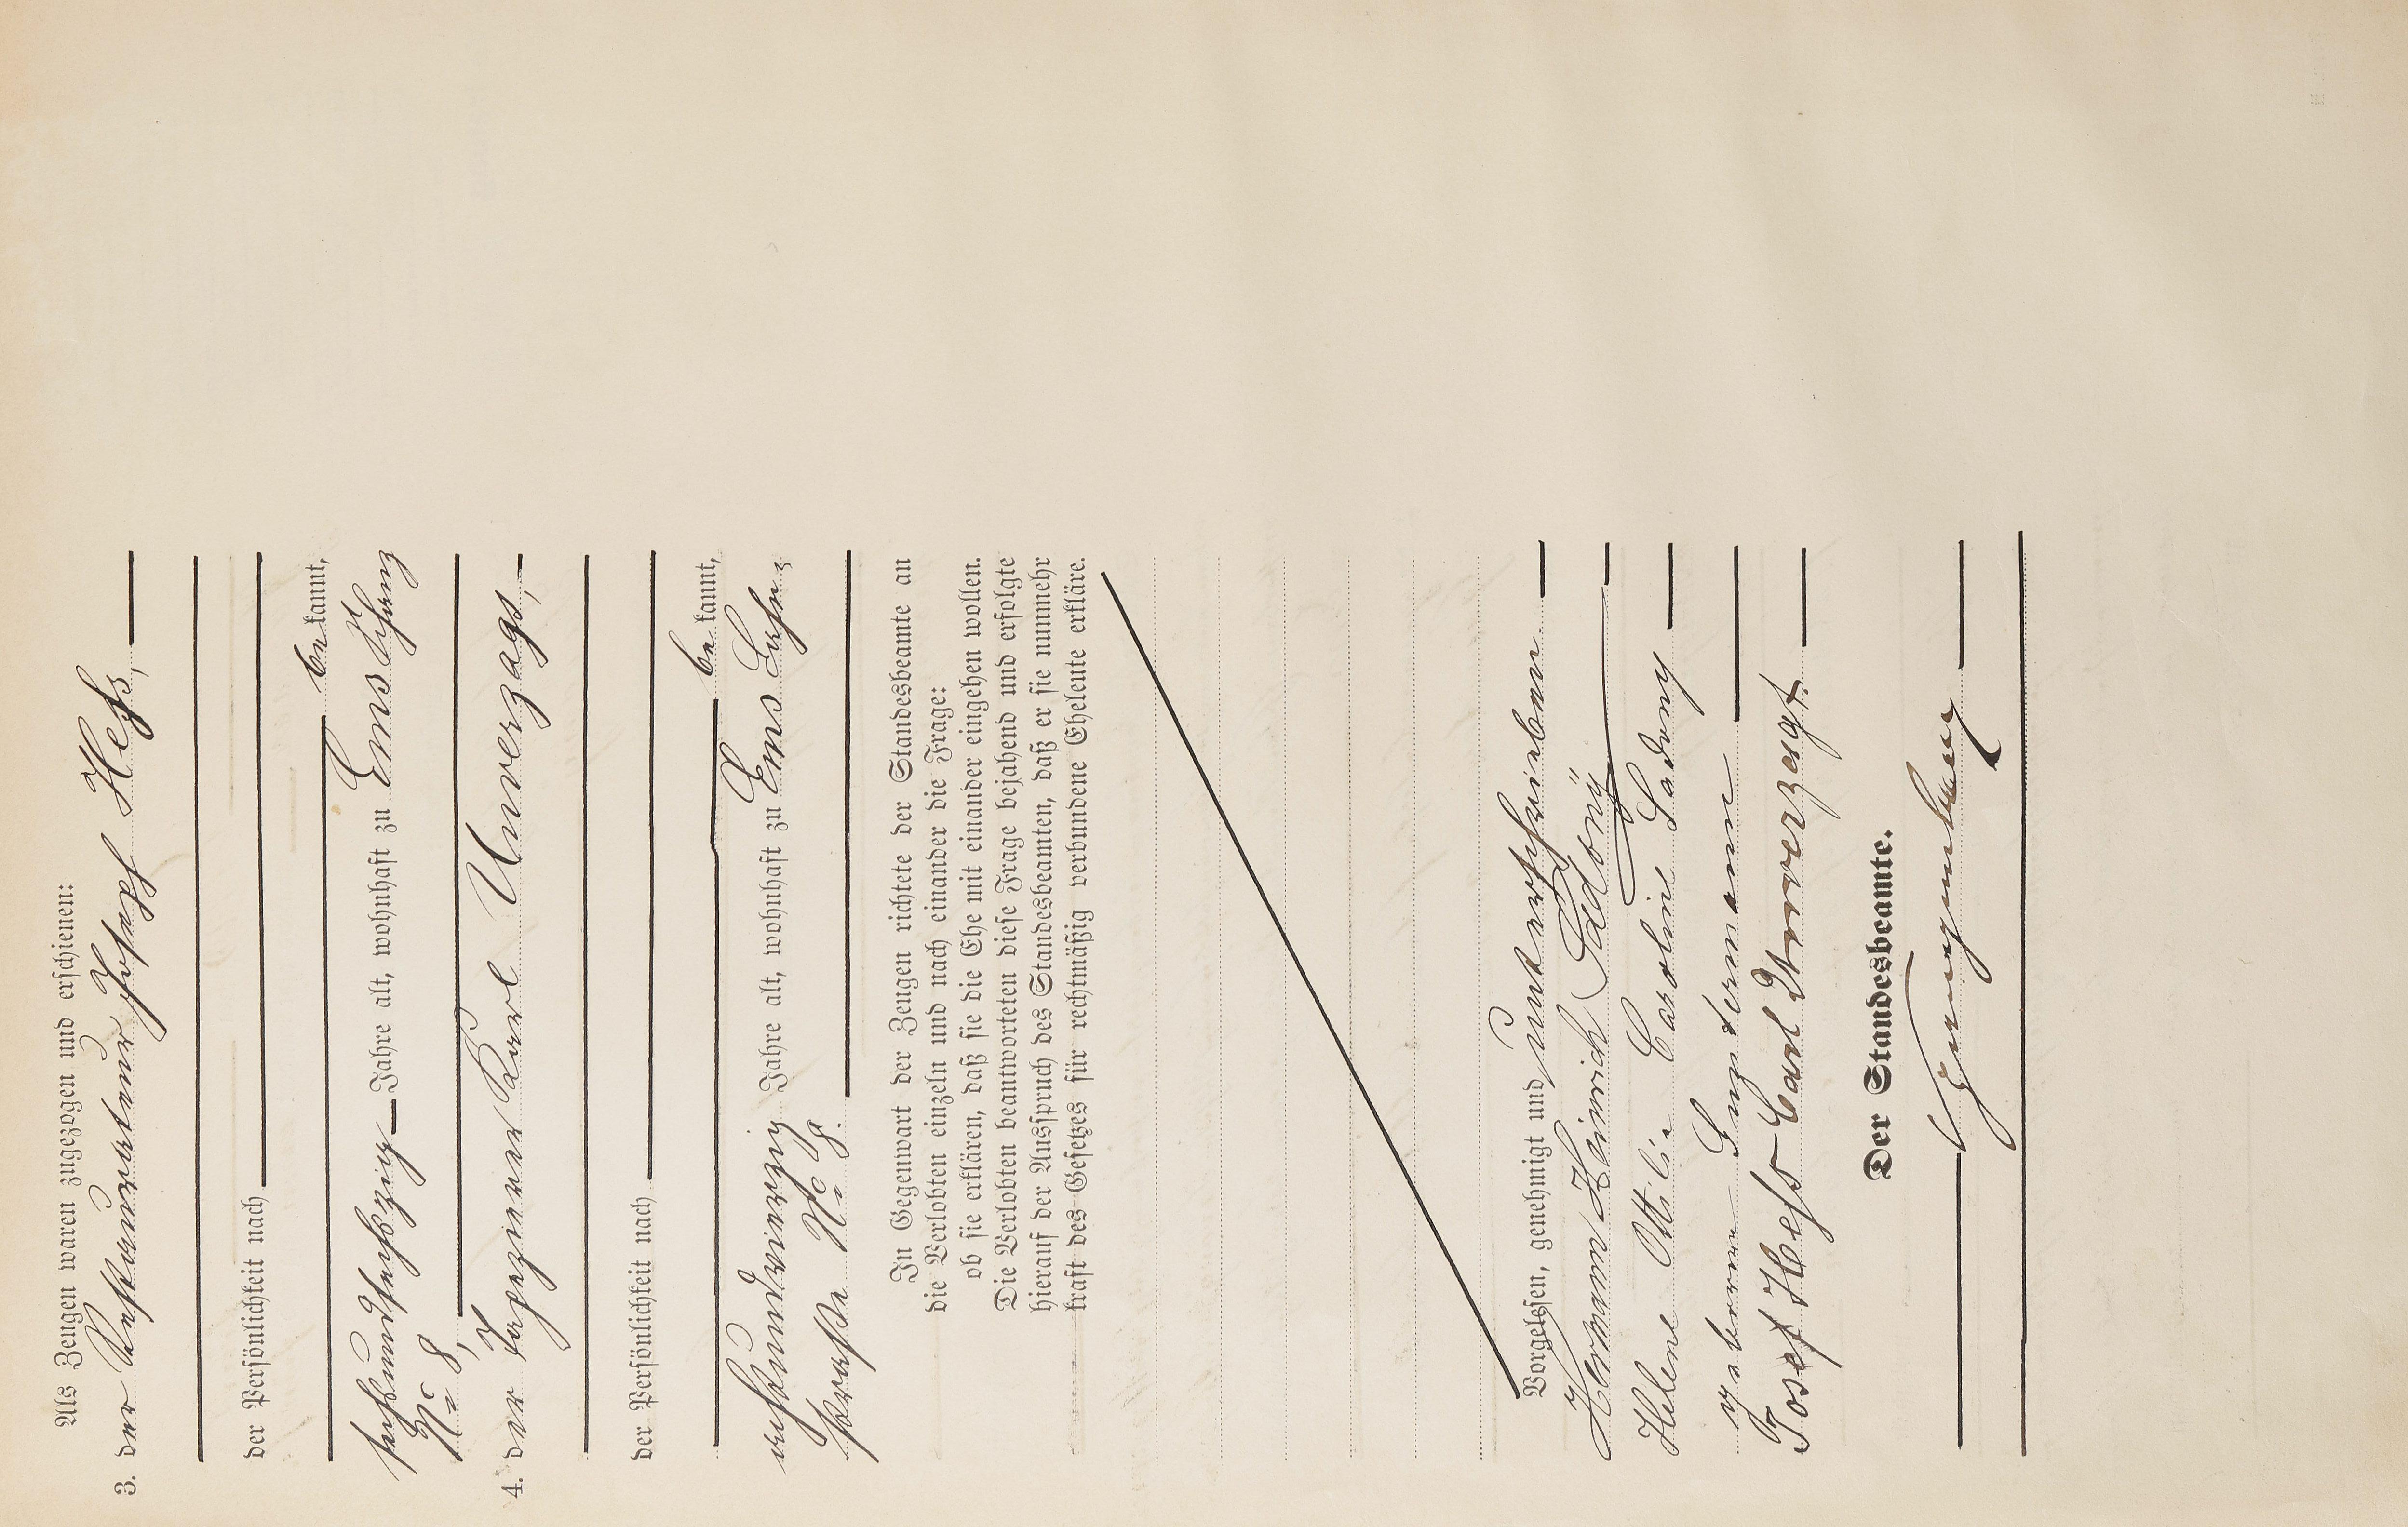 Als Zeugen waren zugezogen und erschienen:
3. der Restaurateur Joseph Heß,
der Persönlichkeit nach
bekannt,
sechsundsechszig Jahre alt, wohnhaft zu Ems
No 8,
4. der Tapezierer Karl Unverzagt,
der Persönlichkeit nach
bekannt,
achtundvierzig Jahre alt, wohnhaft zu Ems Lahn
straße No 8.
In Gegenwart der Zeugen richtete der Standesbeamte an
die Verlobten einzeln und nach einander die Frage:
ob sie erklären, daß sie die Ehe mit einander eingehen wollen.
Die Verlobten beantworteten diese Frage bejahend und erfolgte
hierauf der Ausspruch des Standesbeamten, daß er sie nunmehr
kraft des Gesetzes für rechtmäßig verbundene Eheleute erkläre.
Vorgelesen, genehmigt und unterschrieben
Hermann Heinrich Sadony
Helene Ottilie Caroline Sadony
geborene
Josef Heß Carl Unverzagt.
Der Standesbeamte.